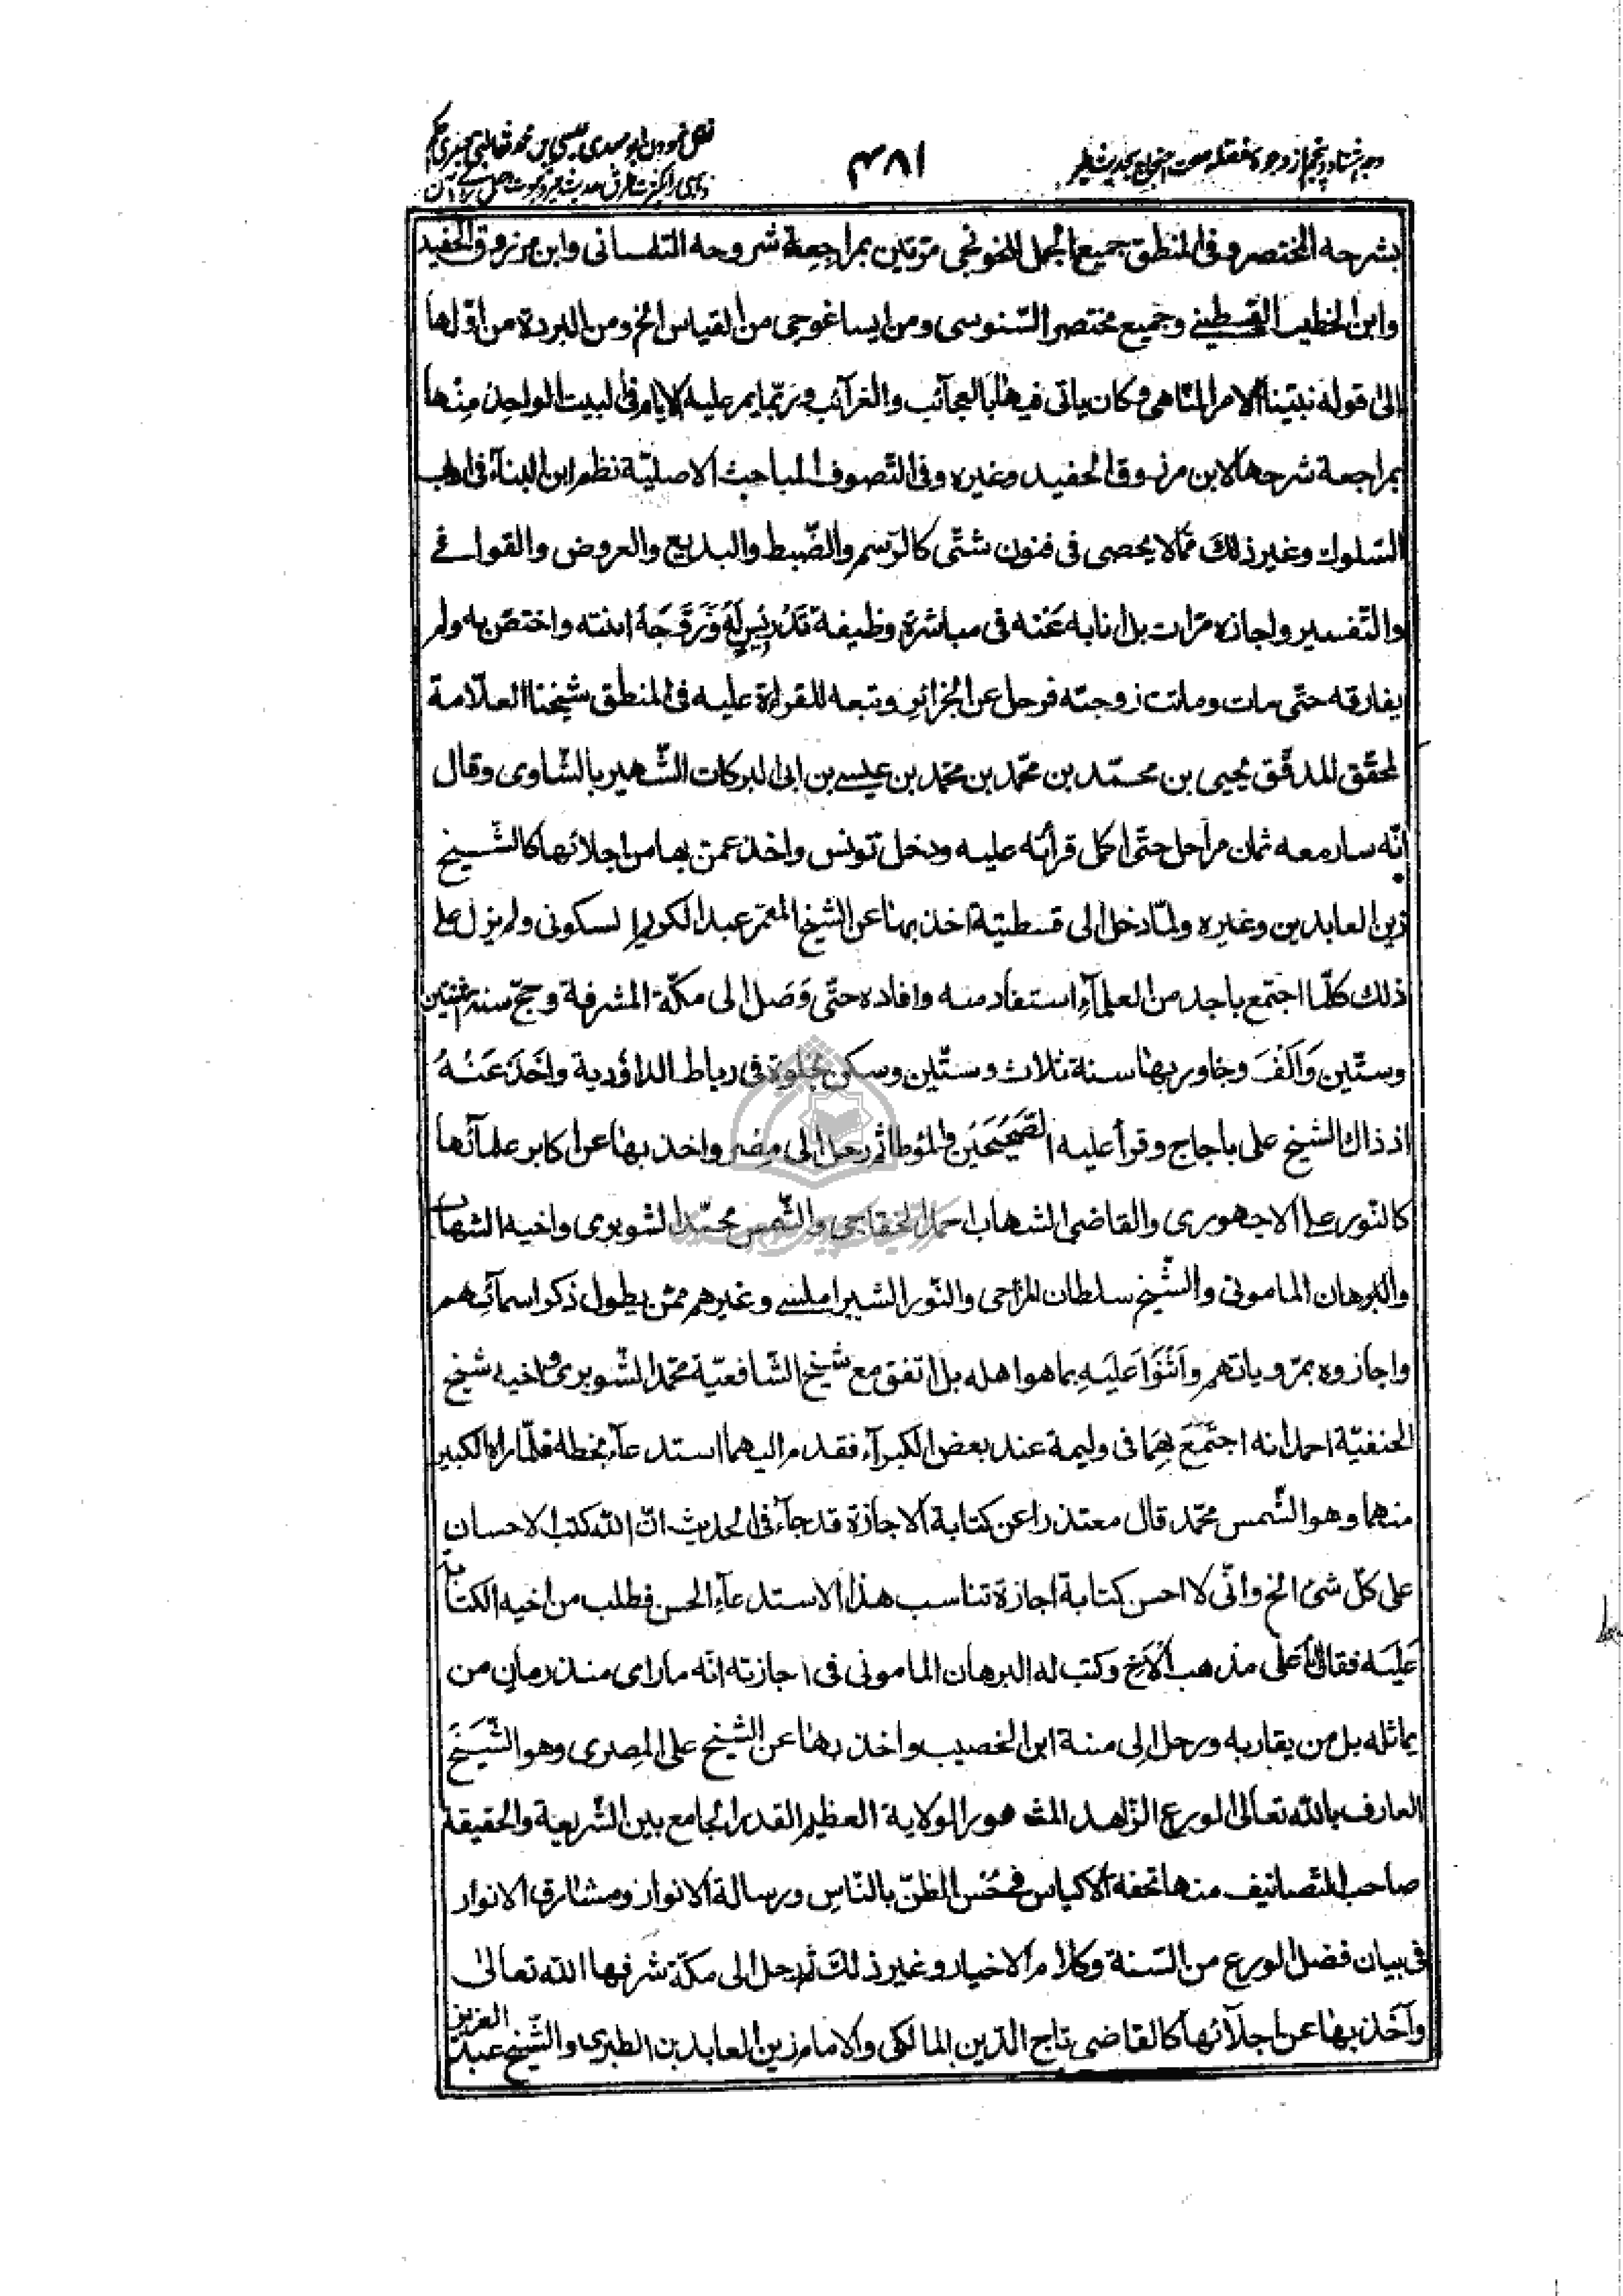 وجه هشتاد و پنجم از وجوه
۴۸۱
نقل نمودن ابو مهدی عیسی بن محمد ثعالبی جعفری
بشرحه المختصر و فی المنطق جمیع الجمل للخونجی مرّتین بمراجعة شروحه التلمسانی وابن مرزوق الحفید
وابن الخطیب القسطینی وجمیع مختصر السّنوسی ومن ایساغوجی من القیاس الخ ومن البردة من اوّلها
الی قوله نبیّنا الامر الناهی وکان یاتی فیها بالعجائب والغرآئب وربّما یمر علیه الایام فی البیت الواحد منها
بمراجعة شرحها لابن مرزوق الحفید وغیره وفی التّصوف المباحث الاصلیّة نظم ابن البنآء فی اداب
السّلوك وغیر ذلك ممّا لا یحصی فی فنون شتّی کالرّسم والضّبط والبدیع والعروض والقوافی
والتّفسیر واجازه مرّات بل انابه عنه فی مباشرة وظیفة تَدریس له وَزَوَّجَهُ ابنته واختصّ به ولم
یفارقه حتّی مات وماتت زوجته فرحل عن الجزائر وتبعه للقراءة علیه فی المنطق شیخنا العلّامة
المحقّق المدقّق یحیی بن محمّد بن محمّد بن محمّد بن عیسی بن ابی البرکات الشّهیر بالشّاوی وقال
انّه سار معه ثمان مراحل حتّی اکمل قرأته علیه ودخل تونس واخذ عمن بها من اجلائها کالشّیخ
زین العابدین وغیره ولمّا دخل الی قسطنیة اخذ بها عن الشیخ المعمّر عبد الکریم السکونی ولم یزل علی
ذلك کلّما اجتمع باحد من العلمآء استفاد منه وافاده حتّی وَصَل الی مکّة المشرفة وحجّ سنة اثنتین
وستّین وَاَلْف وجاور بها سنة ثلاث وستّین وسکن بخلوة فی رباط الداؤدیة واَخَذَ عَنْهُ
اذ ذاك الشیخ علی باحاج وقرأ علیه الصّحیحَین والموطا ثم رحل الی مصر واخذ بها عن اکابر علمآئها
کالنّور علی الاجهوری والقاضی الشهاب احمد الخفاجی والشّمس محمّد الشوبری واخیه الشهاب
والبرهان المامونی والشّیخ سلطان المزاحی والنّور الشبراملسی وغیرهم ممّن یطول ذکر اسمآئهم
واجازوه بمرویاتهم وَاَثْنَوْا عَلَیهِ بما هو اهله بل اتفق مع شیخ الشّافعیّة محمّد الشّوبری واخیه شیخ
الحنفیّة احمد انه اجتَمَع بِهِمَا فی ولیمة عند بعض الکبرآء فقدم الیهما استدعآء بخطه فلمّا راه الکبیر
منهما وهو الشّمس محمّد قال معتذرا عن کتابة الاجازة قد جآء فی الحدیث انّ الله کتب الاحسان
علی کلّ شئ الخ وانّی لا احسن کتابة اجازة تناسب هذا الاستدعآء الحسن فطلب من اخیه الکتابة
عَلَیه فقال انا علی مذهب الاخ وکتب له البرهان المامونی فی اجازته انّه ما رای منذ زمان من
یماثله بل من یقاربه ورحل الی منة ابن الخصیب واخذ بها عن الشیخ علی المصری وهو الشّیخ
العارف بالله تعالی الورع الزّاهد المشهور الولایة العظیم القدر الجامع بین الشّریعة والحقیقة
صاحب التّصانیف منها تحفة الاکیاس فی حُسْن الظنّ بالنّاس ورسالة الانوار ومشارق الانوار
فی بیان فضل الورع من السّنة وکلام الاخیار وغیر ذلك ثم رحل الی مکّة شرفها الله تعالی
واَخَذ بها عن اجلآئها کالقاضی تاج الدّین المالکی والامام زین العابدین الطبری والشّیخ عبد العزیز